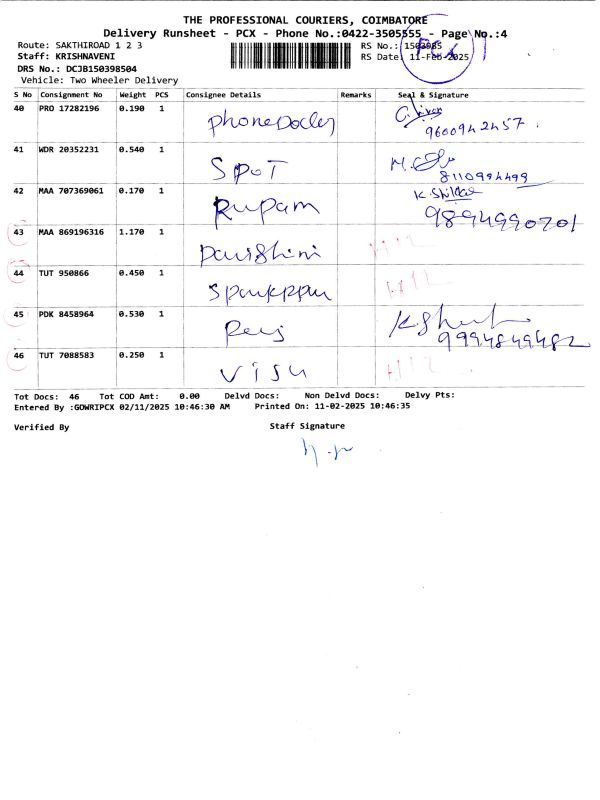 THE PROFESSIONAL COURIERS, COIMBATORE
Delivery Runsheet - PCX - Phone No.:0422-3505555 - Page No.:4
Route: SAKTHIROAD 1 2 3
RS No.: 1503985
Staff: KRISHNAVENI
RS Date: 11-Feb-2025
DRS No.: DCJB150398504
Vehicle: Two Wheeler Delivery
S No Consignment No Weight PCS Consignee Details Remarks Seal & Signature
40 PRO 17282196 0.190 1
9600942457
41 WDR 20352231 0.540 1 SPOT
8110994499
42 MAA 707369061 0.170 1 Rupam
9894990201
43 MAA 869196316 1.170 1
44 TUT 950866 0.450 1
45 PDK 8458964 0.530 1
9994849482
46 TUT 7088583 0.250 1
Tot Docs: 46 Tot COD Amt: 0.00 Delvd Docs: Non Delvd Docs: Delvy Pts:
Entered By :GOWRIPCX 02/11/2025 10:46:30 AM Printed On: 11-02-2025 10:46:35
Verified By Staff Signature